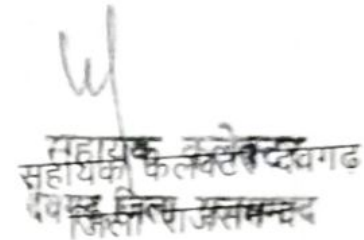 सहायक कलेक्टर
सहायक कलेक्टर देवगढ़
देवगढ़ जिला राजसमन्द
जिला राजसमन्द